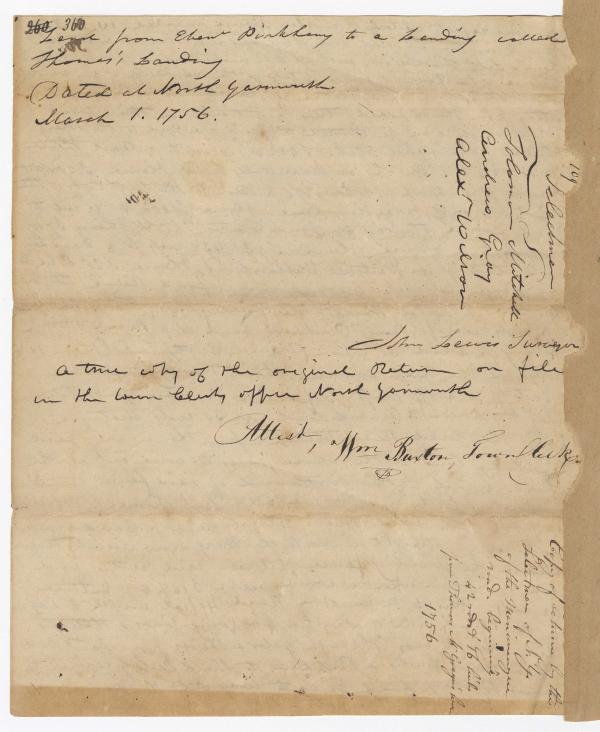 260 360
Lead from Eben^r Pinkham to a Landing called
Thomas's Landing
Dated at North Yarmouth
March 1. 1756.
109
Selectmen
Solomon Mitchell
Andrew Gray
Alex^r Wilson
John Lewis Surveyor
A true copy of the original Return on file
in the town Clerks office North Yarmouth
Attest, Wm Buxton, Town Clerk
Copy of return by the
Selectmen of N. Y.
of the
road beginning
42 rods
from Thomas McGregor's
1756